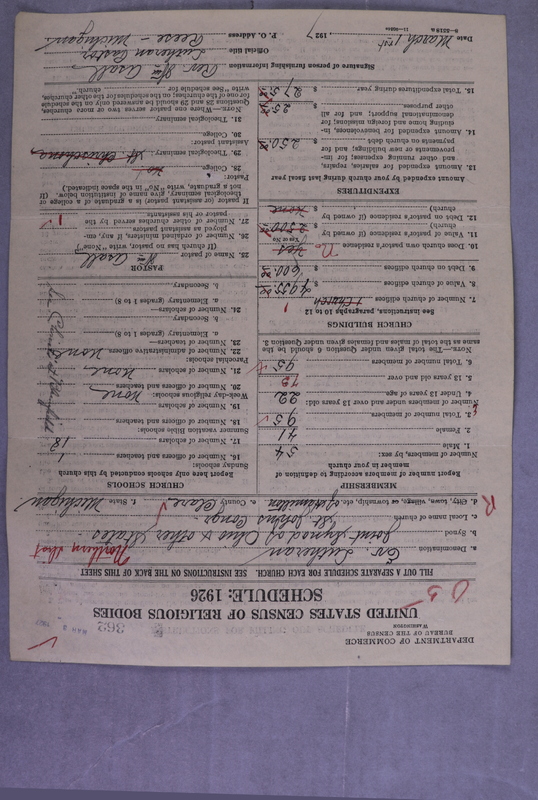 DEPARTMENT OF COMMERCE
BUREAU OF THE CENSUS
WASHINGTON
362
UNITED STATES CENSUS OF RELIGIOUS BODIES
SCHEDULE: 1926
FILL OUT A SEPARATE SCHEDULE FOR EACH CHURCH. SEE INSTRUCTIONS ON THE BACK OF THIS SHEET
a. Denomination Ev. Lutheran
b. Synod Joint Synod of Ohio & other States
c. Local name of church St. Johns Congr.
d. City, town, village, or township, etc. of Hamilton e. County Clare f. State Michigan
MEMBERSHIP
Report number of members according to definition of member in your church
Number of members by sex:
1. Male 54
2. Female 41
3. Total number of members 95
Number of members under and over 13 years old:
4. Under 13 years of age 22
5. 13 years old and over 73
6. Total number of members 95
NOTE.—The total given under Question 6 should be the same as the total of males and females given under Question 3.
CHURCH BUILDINGS
See instructions, paragraphs 10 to 12
7. Number of church edifices 1 Church
8. Value of church edifices $
9. Debt on church edifices $ 600.00
10. Does church own pastor's residence Yes No
(Yes or No)
11. Value of pastor's residence (if owned by church) $ 2500
12. Debt on pastor's residence (if owned by church) $ none
EXPENDITURES
Amount expended by your church during last fiscal year
13. Amount expended for salaries, repairs, and other running expenses; for improvements or new buildings; and for payments on church debt $ 250.
14. Amount expended for benevolences, including home and foreign missions, for denominational support; and for all other purposes $ 25
15. Total expenditures during year $ 275
CHURCH SCHOOLS
Report here only schools conducted by this church
Sunday schools:
16. Number of officers and teachers 1
17. Number of scholars 18
Summer vacation Bible schools:
18. Number of officers and teachers
19. Number of scholars
Week-day religious schools: none
20. Number of officers and teachers
21. Number of scholars none
Parochial schools:
22. Number of administrative officers none
23. Number of teachers—
a. Elementary (grades 1 to 8)
b. Secondary
24. Number of scholars—
a. Elementary (grades 1 to 8)
b. Secondary
PASTOR
25. Name of pastor Wm Asall
(If church has no pastor, write "None")
26. Number of ordained ministers, if any, employed as assistant pastors
27. Number of other churches served by the pastor or his assistants 1
If pastor (or assistant pastor) is a graduate of a college or theological seminary, give name of institution below. (If not a graduate, write "No" in the space indicated.)
Pastor:
28. College no
29. Theological seminary St Chrischona
Assistant pastor:
30. College
31. Theological seminary
Signature of person furnishing information Rev. Wm Asall
Official title Lutheran Pastor
P. O. Address Reese - Michigan
Date March 1st, 1927